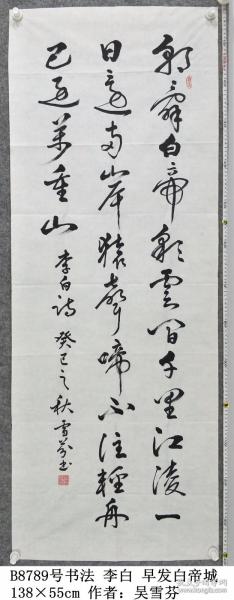 朝辞白帝彩云间千里江陵一
日还两岸猿声啼不住轻舟
已过万重山
李白诗 癸巳之秋 雪芬书
B8789号书法 李白 早发白帝城
138×55cm 作者：吴雪芬